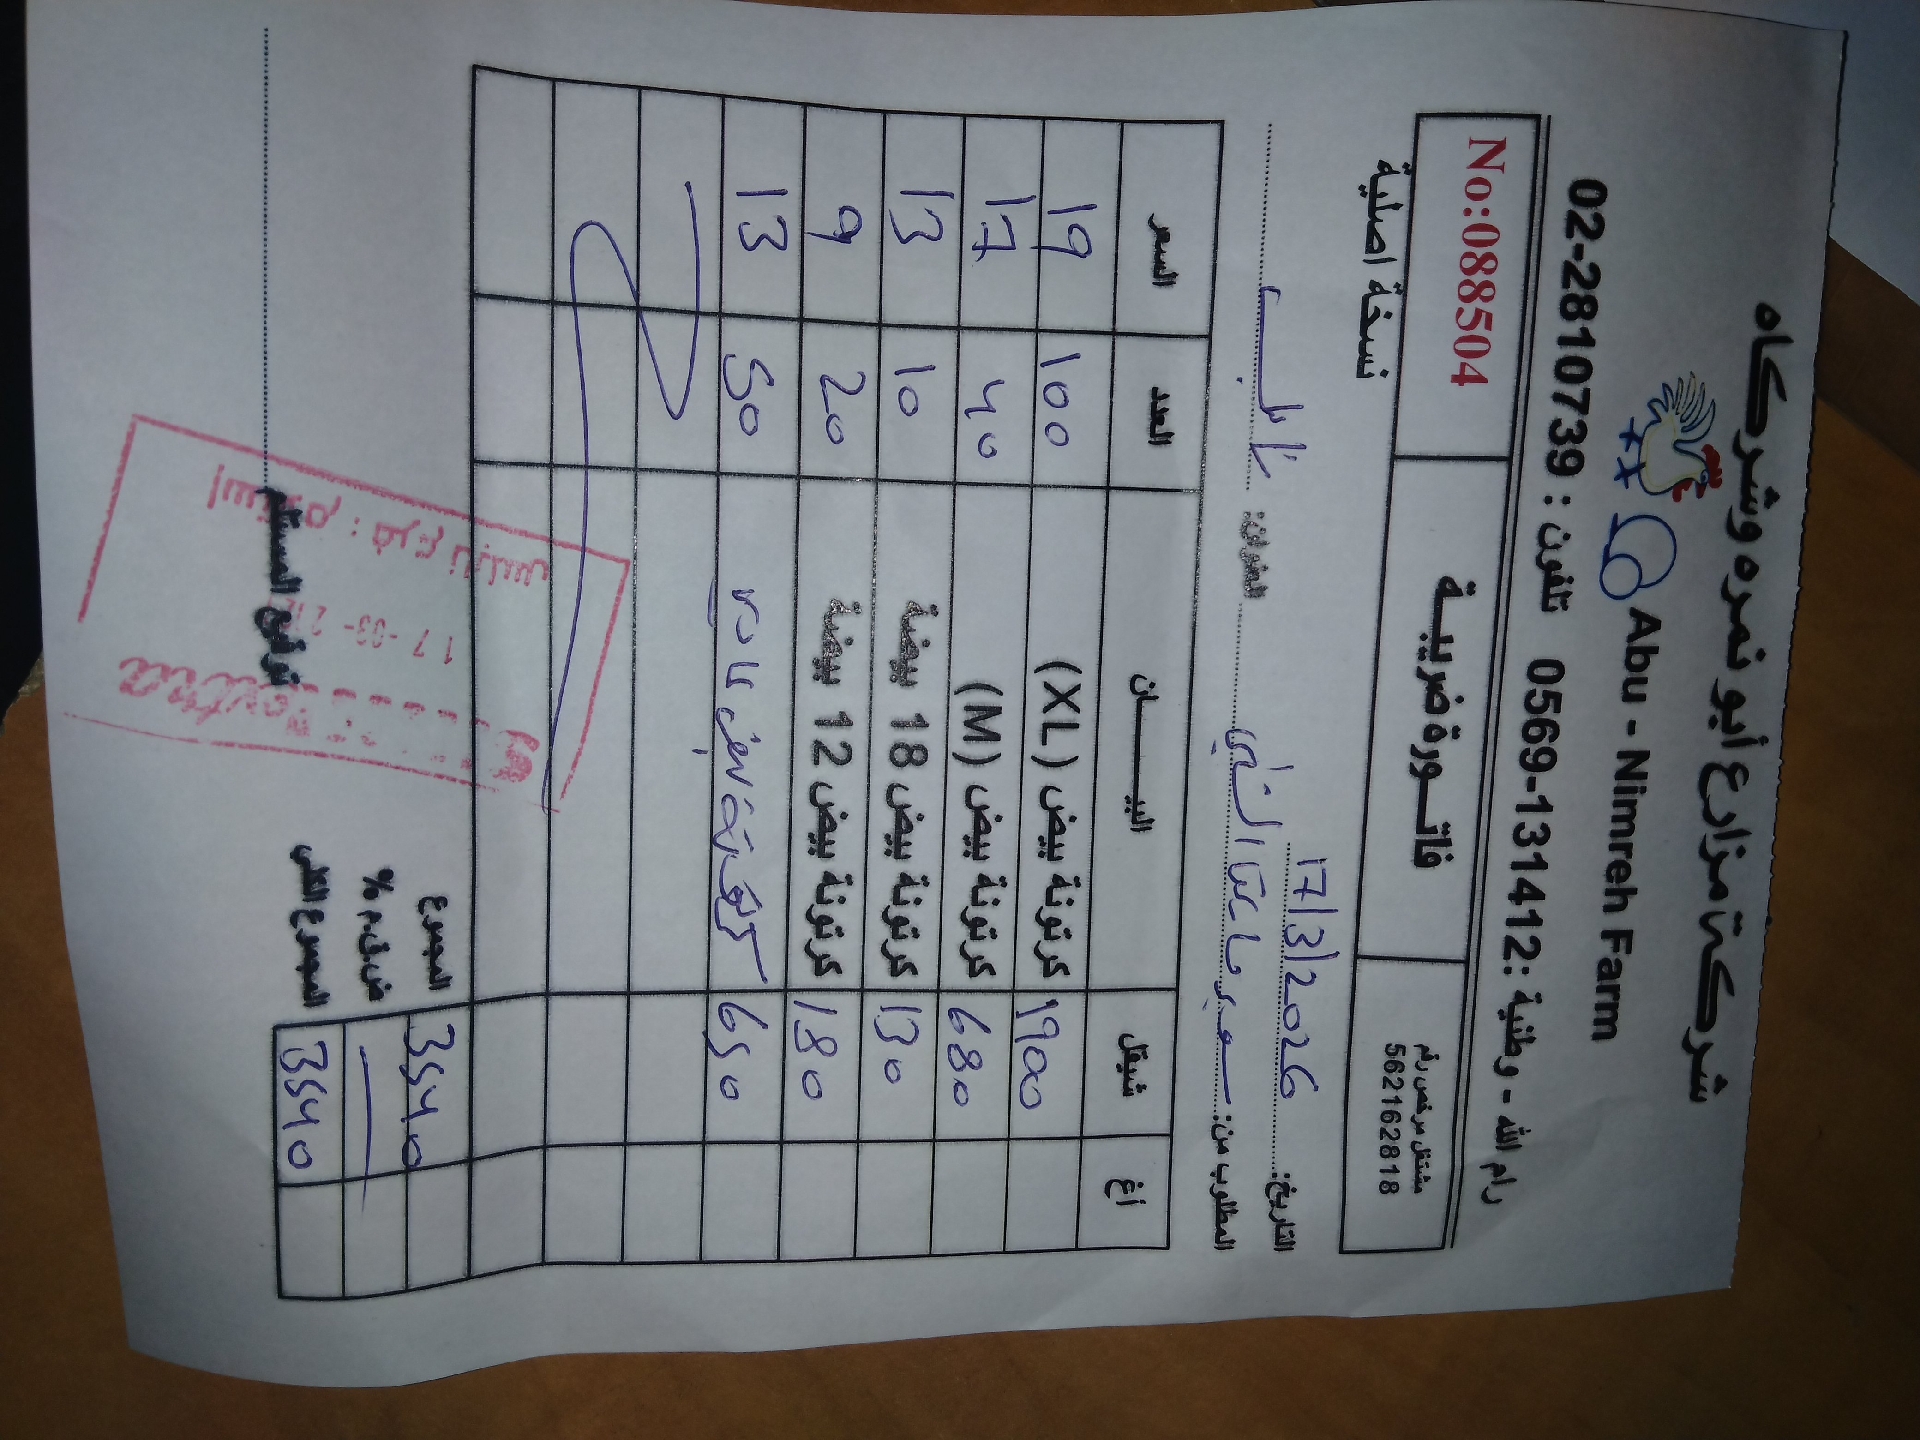 شركة مزارع أبو نمره وشركاه
Abu - Nimreh Farm
رام الله - وطنية : 0569-131412 تلفون : 02-2810739
مشتغل مرخص رقم
562162818
فاتورة ضريبية
No:088504
نسخة اصلية
التاريخ: 17/3/2026
المطلوب من: سوبر ماركت العنوان: نابلس
أغ شيقل البيان العدد السعر
1900 كرتونة بيض (XL) 100 19
680 كرتونة بيض (M) 40 17
130 كرتونة بيض 18 بيضة 10 13
180 كرتونة بيض 12 بيضة 20 9
650 كرتونة بيض 50 13
المجموع 3540
ض.ق.م %
المجموع الكلي 3540
توقيع المستلم
استلام : فرع نابلس
17-03-